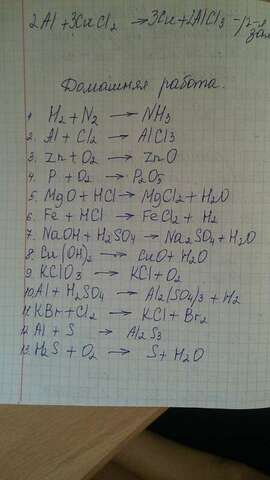 2Al+3CuCl2 → 3Cu+2AlCl3 -р-я
зам
Домашняя работа.
1. H2 + N2 → NH3
2. Al + Cl2 → AlCl3
3. Zn + O2 → ZnO
4. P + O2 → P2O5
5. MgO + HCl → MgCl2 + H2O
6. Fe + HCl → FeCl2 + H2
7. NaOH + H2SO4 → Na2SO4 + H2O
8. Cu(OH)2 → CuO + H2O
9. KClO3 → KCl + O2
10. Al + H2SO4 → Al2(SO4)3 + H2
11. KBr + Cl2 → KCl + Br2
12. Al + S → Al2S3
13. H2S + O2 → S + H2O